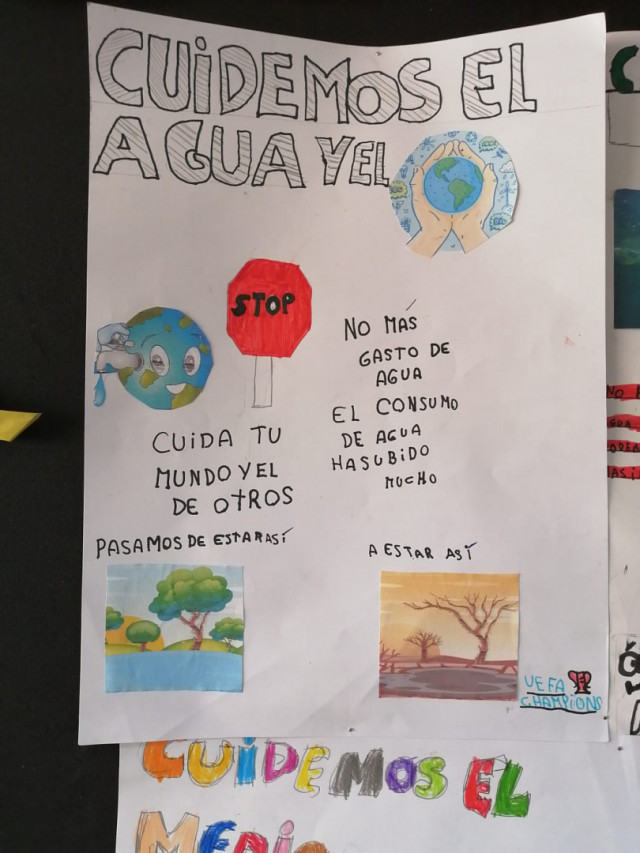 CUIDEMOS EL
AGUA Y EL
STOP
NO MÁS
GASTO DE
AGUA
EL CONSUMO
DE AGUA
HA SUBIDO
MUCHO
CUIDA TU
MUNDO Y EL
DE OTROS
PASAMOS DE ESTAR ASÍ
A ESTAR ASÍ
UEFA
CHAMPIONS
CUIDEMOS EL
MEDIO